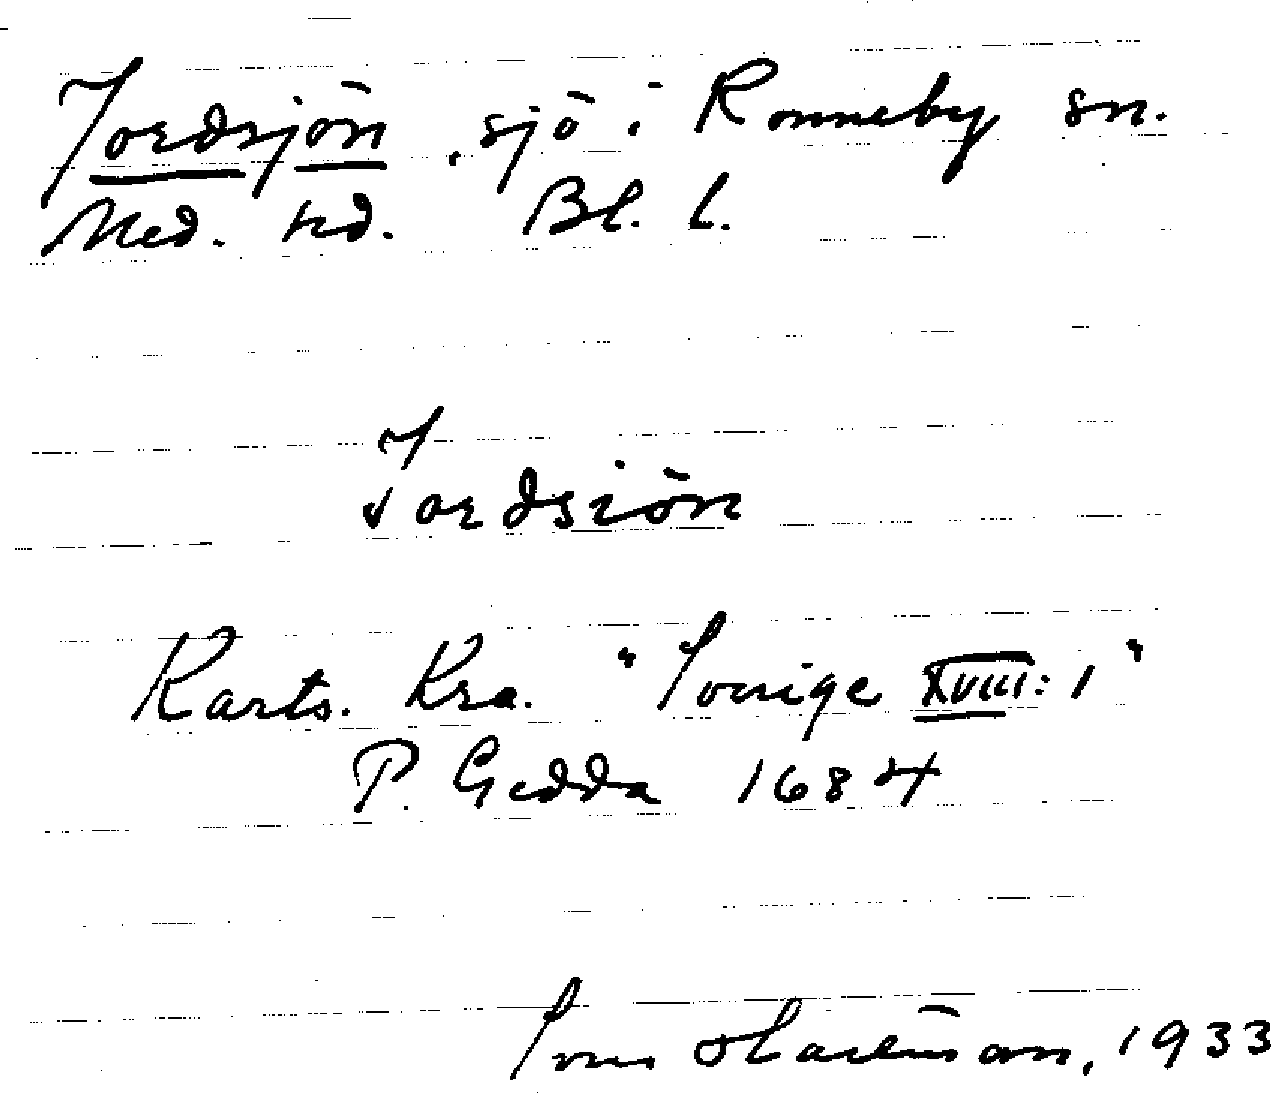 Jordsjön, sjö i Ronneby sn.
Med. hd. Bl. l.
Jordsiön
Karts. Kra. "Sverige XVIII: 1"
P. Gedda 1684
1933